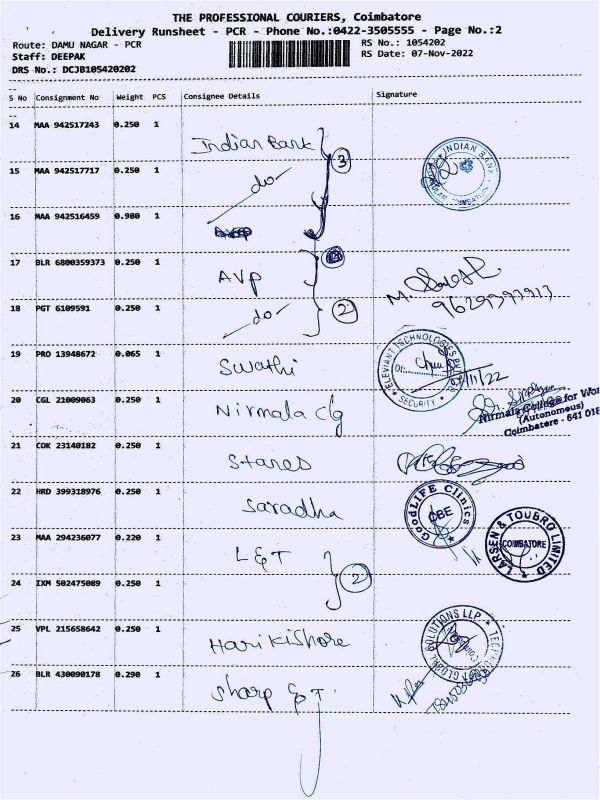 THE PROFESSIONAL COURIERS, Coimbatore
Delivery Runsheet - PCR - Phone No.:0422-3505555 - Page No.:2
Route: DAMU NAGAR - PCR
RS No.: 1054202
Staff: DEEPAK
RS Date: 07-Nov-2022
DRS No.: DCJB105420202
S No Consignment No Weight PCS Consignee Details Signature
14 MAA 942517243 0.250 1 Indian Bank
3
INDIAN BANK
15 MAA 942517717 0.250 1 do
16 MAA 942516459 0.980 1
17 BLR 6800359373 0.250 1 AVP
M.
18 PGT 6109591 0.250 1 do 2
19 PRO 13948672 0.065 1 Swathi
ELEVIANT TECHNOLOGIES
SECURITY
/11/22
20 CGL 21009063 0.250 1 Nirmala clg
Nirmala College for Wom
(Autonomous)
Coimbatore - 641 018
21 COK 23140182 0.250 1 Stares
22 HRD 399318976 0.250 1 Saradha
GoodLIFE Clinics
CBE
23 MAA 294236077 0.220 1 L&T
LARSEN & TOUBRO LIMITED
COIMBATORE
24 IXM 502475089 0.250 1 2
25 VPL 215658642 0.250 1 Harikishore
GLOBAL SOLUTIONS LLP
26 BLR 430090178 0.290 1 Sharp & T.